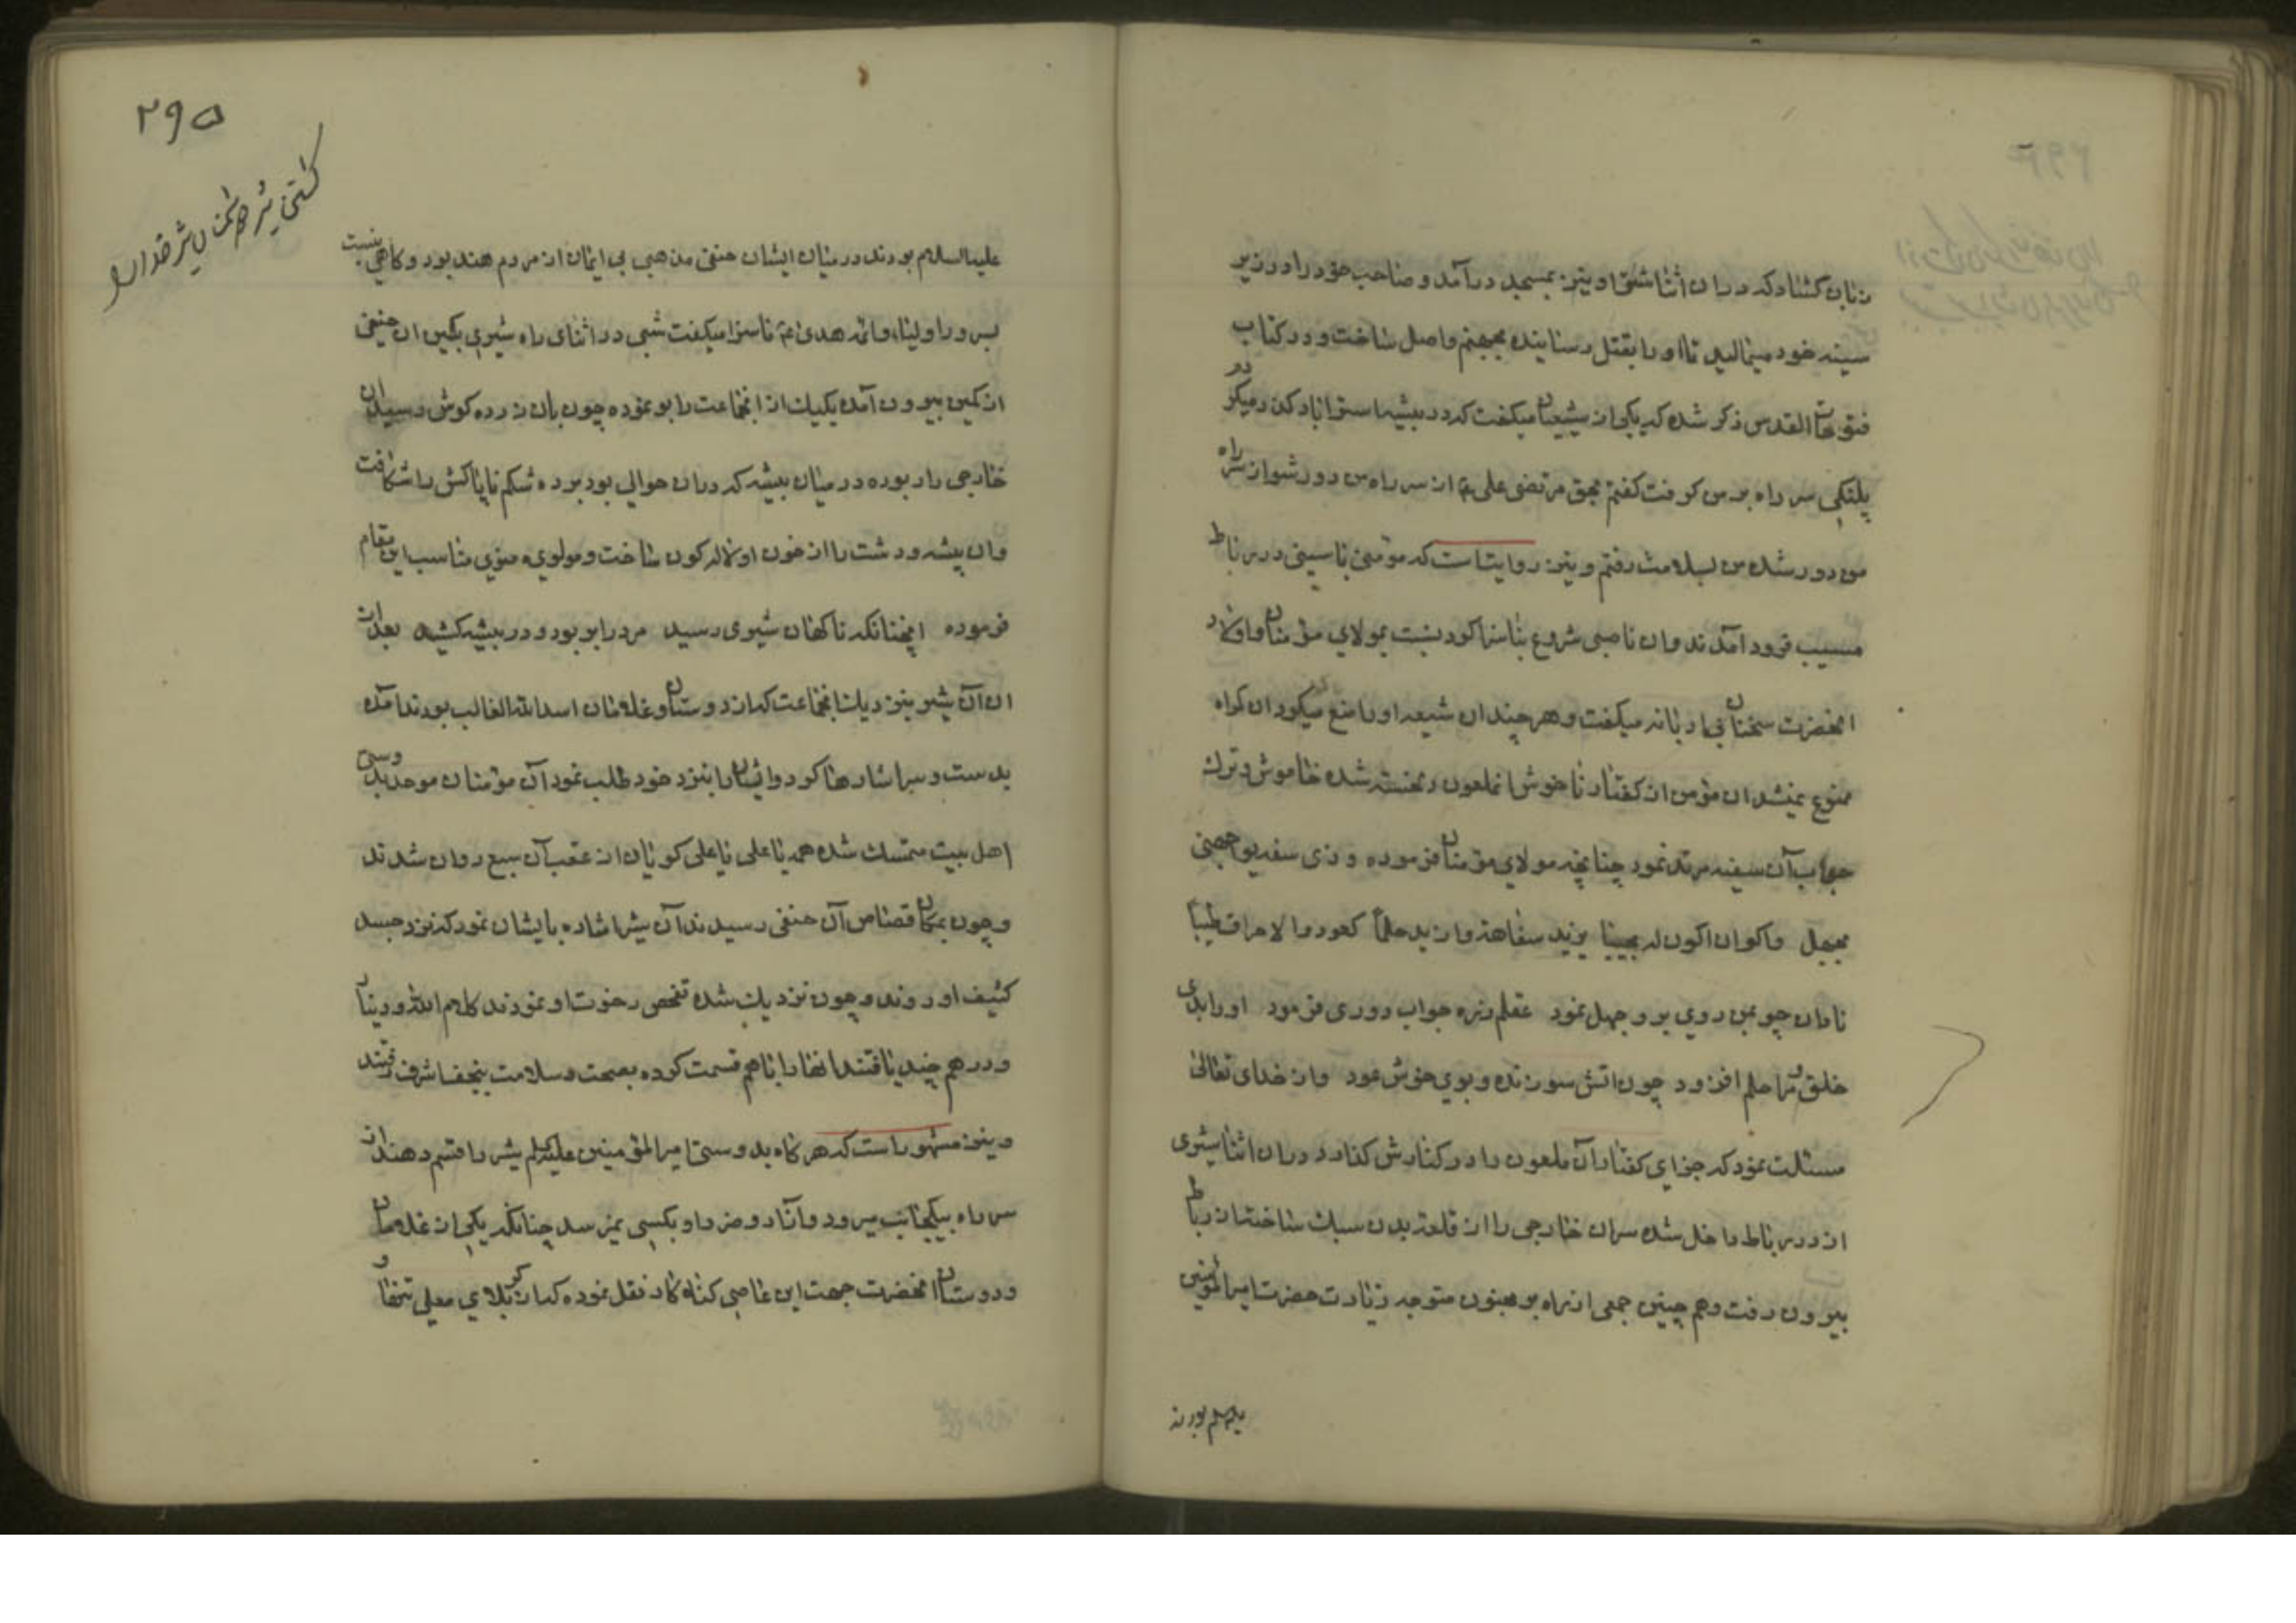 زبان کشاد که دران اثنا شقی او نیز بمسجد درآمد و صاحب خود را در زیر
سینه خود میمالید تا او را بقتل رسانیده بجهنم واصل ساخت و در کتاب
فتوحات القدس ذکر شده که یکی از شیعیان میکفت که در بیشه استراباد کذر میکردم
پلنکی سر راه بر من کرفت کفتم بحق مرتضی علی ع از سر راه من دور شو از سر راه
من دور شد من بسلامت رفتم و نیز روایتست که مؤمنی با سینی در رباط
مسیب فرود آمدند و ان ناصبی شروع بناسزا کرد نسبت بمولای مؤمنان و اولاد
انحضرت سخنان بی ادبانه میکفت و هر چند ان شیعه او را منع میکرد ان کمراه
ممنوع نمیشد ان مؤمن از کفتار ناخوش انملعون رنجیده شده خاموش و ترک
جواب آن سفیه مرتد نمود چنانچه مولای مؤمنان فرموده و ذی سفه یواجهنی
بجهل واکره ان اکون له مجیبا یزید سفاهة وازید حلماً کعود زاد الاحراق طیباً
نادان چو بمن روی بر و جهل نمود عقلم زره جواب دوری فرمود او را بدی
خلق و مرا حلم افزود چون اتش سوزنده و بوی خوش عود و از خدای تعالی
مسئلت نمود که جزای کفتار آن ملعون را در کنارش کذارد دران اثنا شیری
از در رباط داخل شده سر ان خارجی را از قلعه بدن سبک ساخته از رباط
بیرون رفت و هم چنین جمعی از راه بر متوجه زیارت حضرت امیرالمؤمنین
علیه السلم بودند
۲۹۵
کشتن شیر
علیه السلام بودند در میان ایشان حنفی مذهبی بی ایمان از مردم هند بود و کاهی نسبت
بسرور اولیاء و ائمه هدی ع ناسزا میکفت شبی در اثنای راه شیری بکین ان حنفی
از کمین بیرون آمده یکیک از انجماعت را بو نموده چون بان زرده کوش رسید ان
خارجی را ربوده در میان بیشه که دران حوالی بود برده شکم ناپاکش را شکافت
وان بیشه و دشت را از خون او لاله کون ساخت و مولوی معنوی مناسب این مقام
فرموده انچنانکه ناکهان شیری رسید مرد را بربود و در بیشه کشید بعد از
ان آن شیر بنزدیک انجماعت که از دوستان و غلامان اسدالله الغالب بودند آمده
بدست و سر اشارها کرد و ایشان را بنزد خود طلب نمود آن مؤمنان موحد بدوستی
اهل بیت متمسک شده همه یا علی یا علی کویان از عقب آن سبع روان شدند
و چون بمکان قصاص آن حنفی رسیدند آن شیر اشاره بایشان نمود که نزد جسد
کثیف او روند و چون نزدیک شده تفحص رخوت او نمودند کلام الله و دینار
و درهم چند یافتند انها را باهم قسمت کرده بصحت و سلامت بنجف اشرف رفتند
و نیز مشهور است که هر کاه بدوستی امیرالمؤمنین علیه السلم شیر را قسم دهند از
سر راه بیکجانب میرود و آزار و ضرر او بکسی نمیرسد چنانکه یکی از غلامان
و دوستان انحضرت جهت این عاصی کناه کار نقل نموده که از کربلای معلی